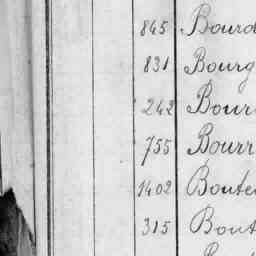 845 Bourd
831 Bourg
242 Bour
755 Bourr
1402 Boute
315 Bout